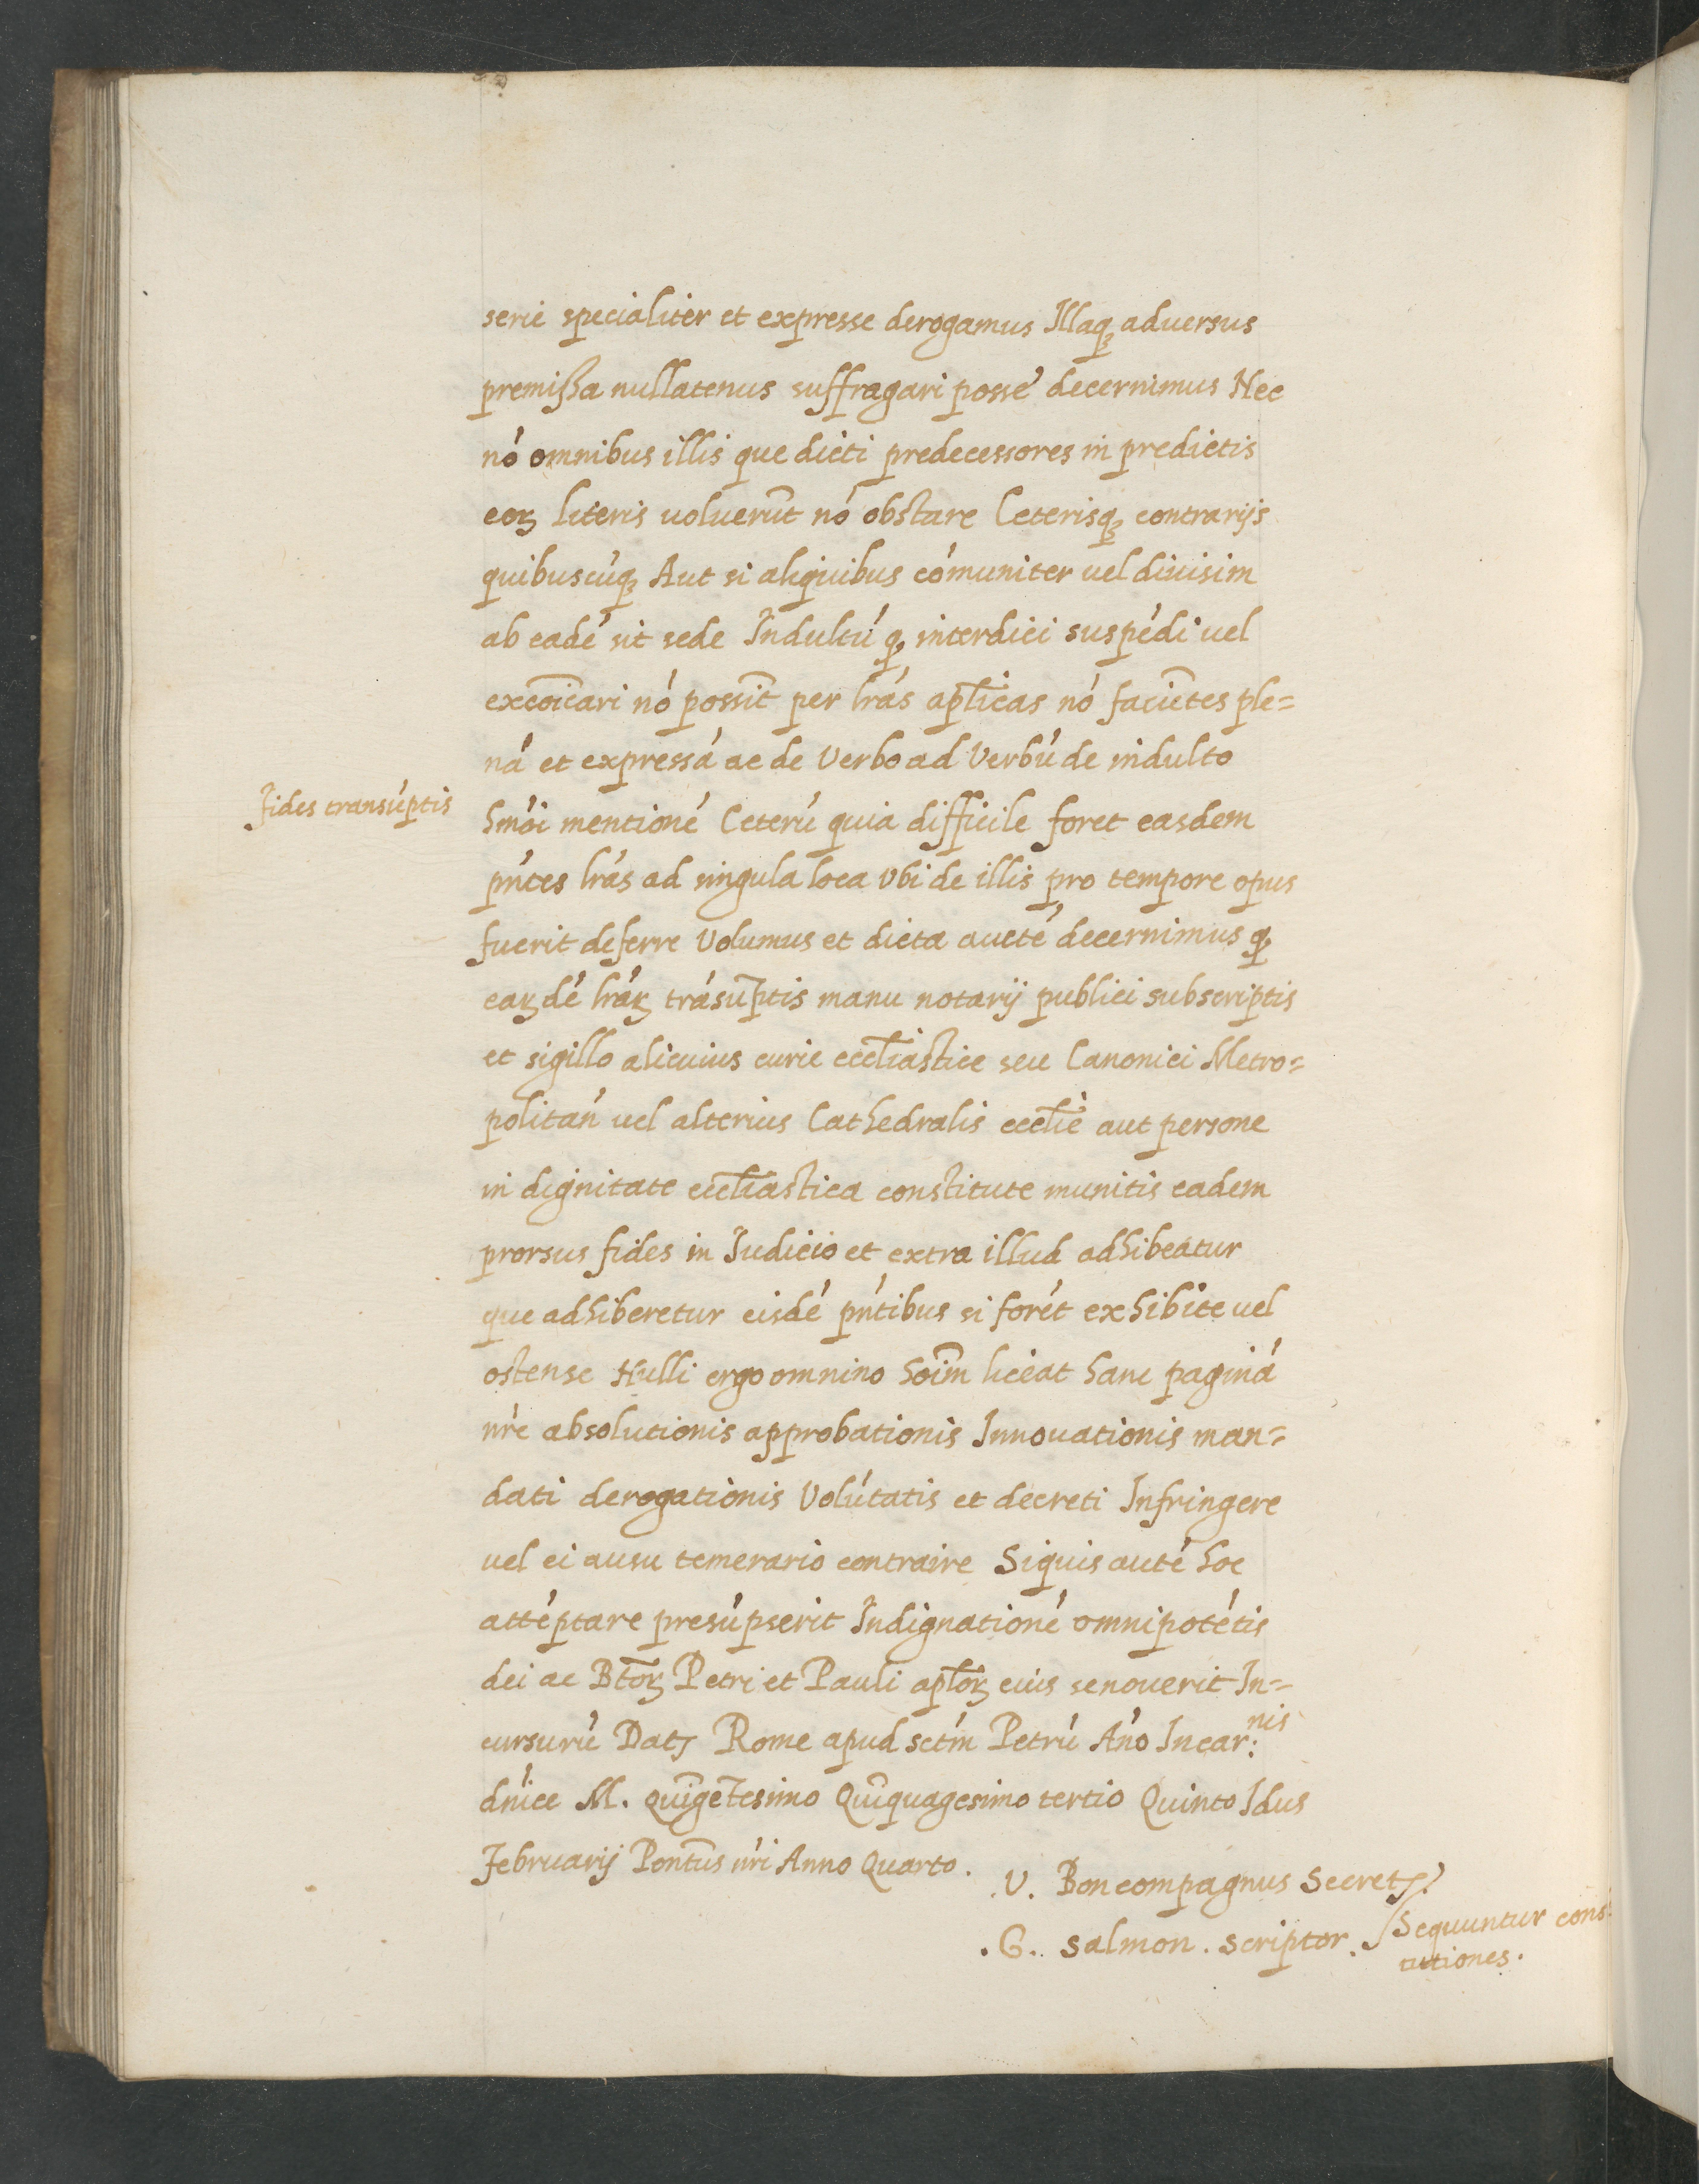 serie specialiter et expresse derogamus Illaqꝫ aduersus
premißa nullatenus suffragari posse decernimus Nec
nó omnibus illis que dicti predecessores in predictis
eoꝝ literis uoluerūt nó obstare Ceterisqꝫ contrarijs
quibuscúqꝫ Aut si aliquibus cómuniter uel diuisim
ab eadé sit sede Indultú qꝫ interdici suspédi uel
excōicari nó possīt per lrás aplīcas nó faciētes ple=
ná et expressá ac de Verbo ad Verbú de indulto
Fides transúptis
hmói mentioné Ceterú quia difficile foret easdem
pńtes lrás ad singula loca Vbi de illis pro tempore opus
fuerit deferre Volumus et dicta aucté decernimus qꝫ
eaꝝdé lráꝝ trásūptis manu notarij publici subscriptis
et sigillo alicuius curie eccl̄iastice seu Canonici Metro=
politań uel alterius Cathedralis eccl̄ie aut persone
in dignitate eccl̄iastica constitute munitis eadem
prorsus fides in Iudicio et extra illud adhibeatur
que adhiberetur eisdé pńtibus si forét exhibite uel
ostense Nulli ergo omnino hoīm liceat hanc paginá
nŕe absolutionis approbationis Innouationis man=
dati derogationis Volútatis et decreti Infringere
uel ei ausu temerario contraire Siquis auté hoc
attéptare presúpserit Indignationé omnipotétis
dei ac Btōꝝ Petri et Pauli apl̄oꝝ eius se nouerit In=
cursurú Datꝭ Rome apud sctḿ Petrú Ańo Incar:nis
dńice M. quīgētesimo Quīquagesimo tertio Quinto Idus
Februarij Pontūs nŕi Anno Quarto.
.V. Boncompagnus Secretꝭ.
.G. Salmon. scriptor.
Sequuntur cons
tutiones.